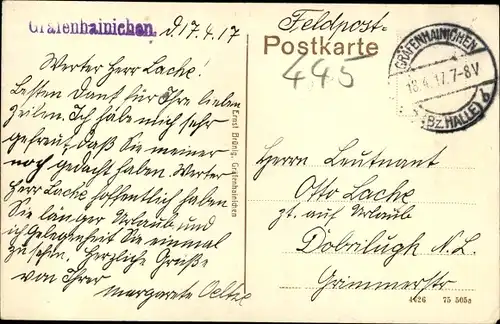 Gräfenhainichen. d. 17.4.17
Werter Herr Lache!
Besten Dank für Ihre lieben
Zeilen. Ich habe mich sehr
gefreut daß Sie meiner
noch gedacht haben. Werter
Herr Lache hoffentlich haben
Sie langer Urlaub und
ich Gelegenheit Sie einmal
zu sehn. Herzliche Grüße
von Ihrer
Margarete
Ernst Brünig, Gräfenhainichen
Feldpost-
Postkarte
445
GRÄFENHAINICHEN
18.4.17.7-8V
(Bz. HALLE)
Herrn Leutnant
Otto Lache
zt. auf Urlaub
Dobrilugk N.L.
Grimmerstr
4426 75 505a